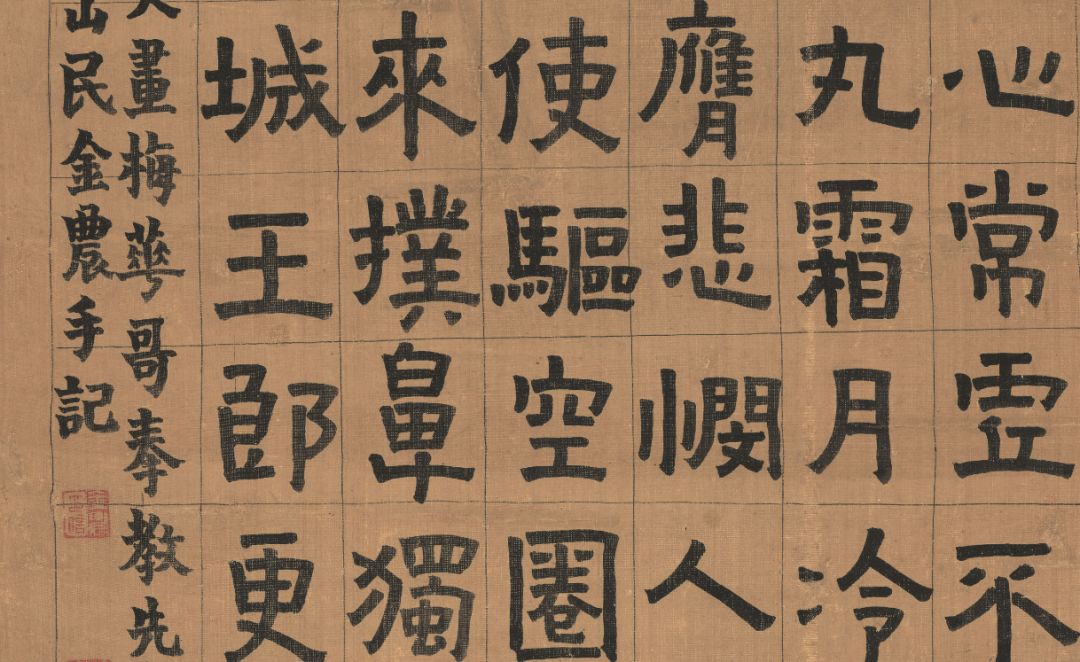 心常虗不
丸霜月冷
膺悲憫人
使驅空圈
來撲鼻獨
城王郎更
畫梅華哥奉教先
山民金農手記